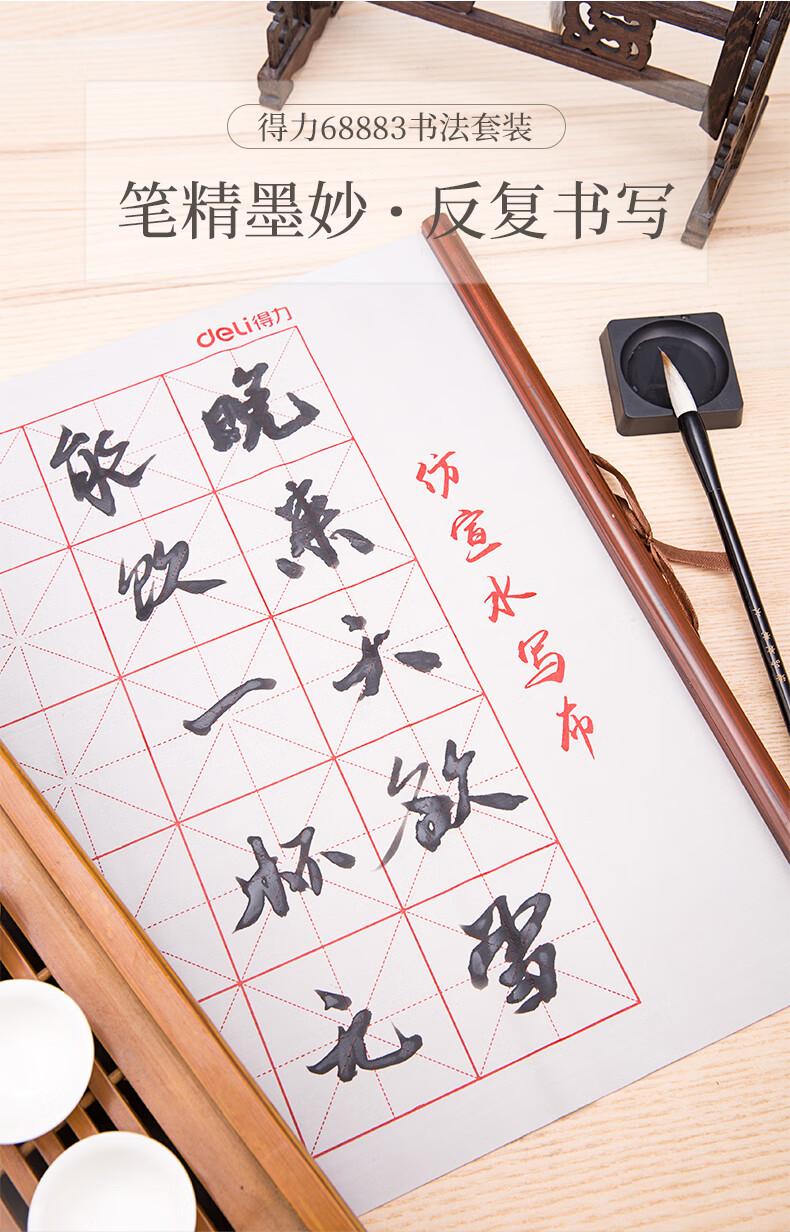 得力68883书法套装
笔精墨妙·反复书写
deli得力
仿宣水写布
晚来天欲雪
能饮一杯无